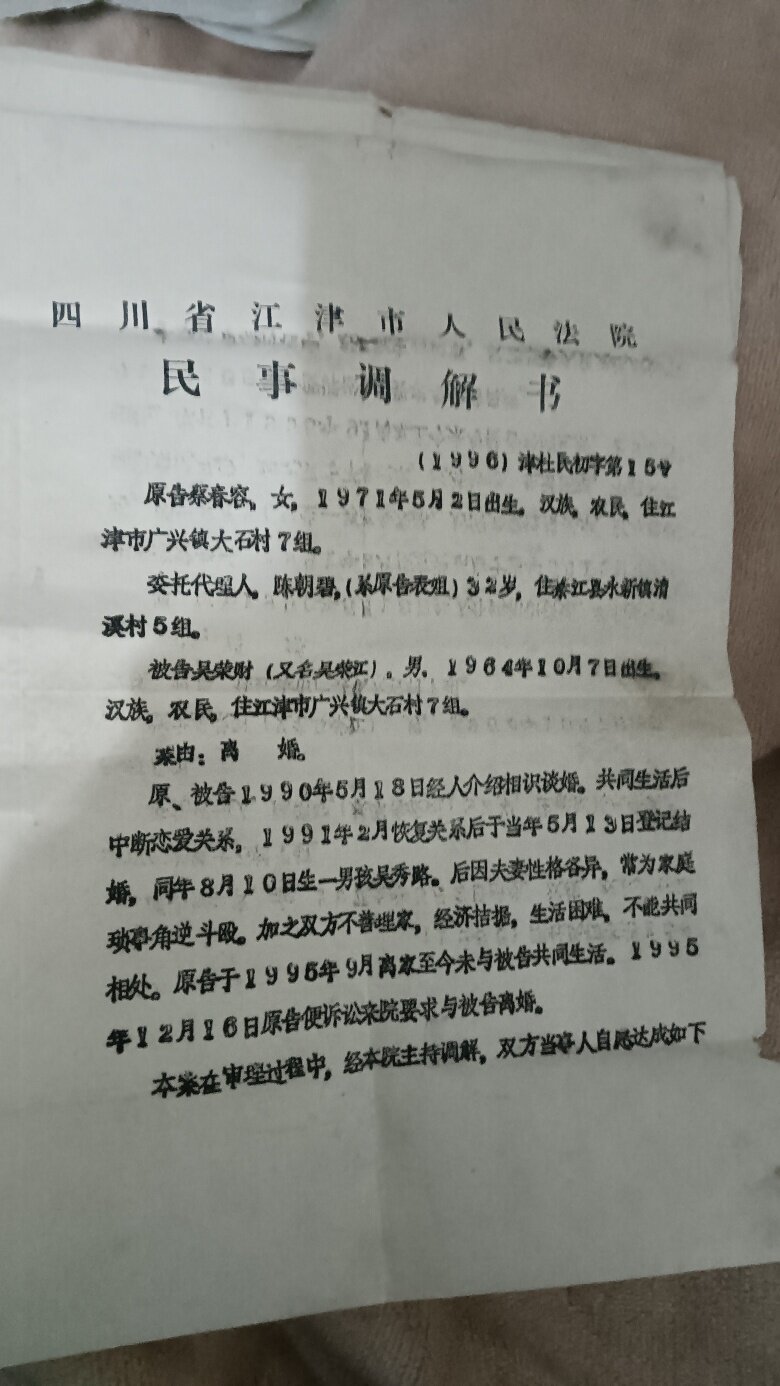 四川省江津市人民法院
民事调解书
(1996)津杜民初字第15号
原告蔡春容，女，1971年5月2日出生。汉族。农民，住江
津市广兴镇大石村7组。
委托代理人，陈朝碧，(系原告表姐)32岁，住綦江县永新镇清
溪村5组。
被告吴荣财(又名吴荣江)。男，1964年10月7日出生。
汉族。农民，住江津市广兴镇大石村7组。
案由：离 婚。
原、被告1990年5月18日经人介绍相识谈婚。共同生活后
中断恋爱关系，1991年2月恢复关系后于当年5月13日登记结
婚，同年8月10日生一男孩吴秀路。后因夫妻性格各异，常为家庭
琐事角逆斗殴。加之双方不善理家，经济拮据，生活困难，不能共同
相处。原告于1995年9月离家至今未与被告共同生活。1995
年12月16日原告便诉讼来院要求与被告离婚。
本案在审理过程中，经本院主持调解，双方当事人自愿达成如下